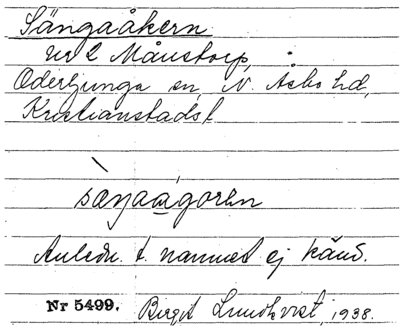 Sängaåkern
nr 2 Månstorp,
Oderljunga sn, N. Åsbo hd,
Kristianstads l.
sæŋaágorɛn
Anledn. t. namnet ej känd.
Nr 5499. Birgit Lundkvist, 1938.